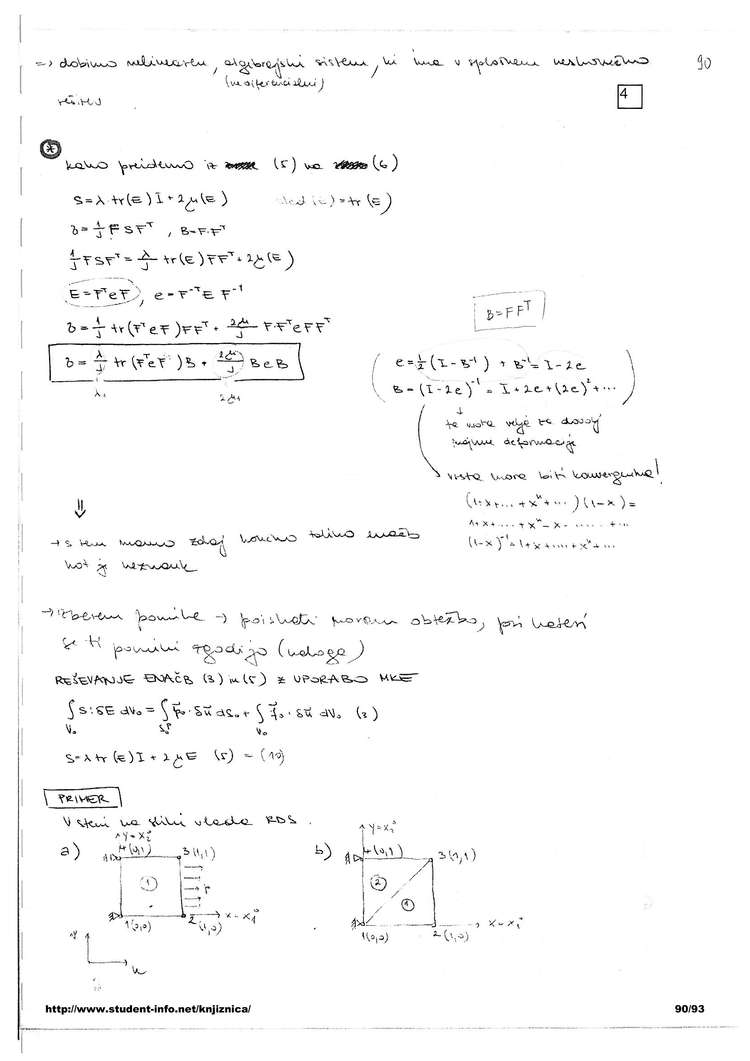 => dobimo nelinearen, algebrajski sistem, ki ima v splošnem neskončno 90
(nediferencialni)
rešitev
4
*
kako preidemo iz (5) na (6)
S=λ·tr(E)I+2μ(E)
sled(E)=tr(E)
σ=1/J F S Fᵀ, B=F·Fᵀ
1/J FSFᵀ=λ/J tr(E)FFᵀ+2μ/J(E)
E=FᵀeF, e=F⁻ᵀE F⁻¹
B=FFᵀ
σ=1/J tr(FᵀeF)FFᵀ+2μ/J F·FᵀeFFᵀ
σ=λ/J tr(FᵀeF)B+2μ/J BeB
λ₁ 2μ₁
e=1/2(I-B⁻¹) → B⁻¹=I-2e
B=(I-2e)⁻¹=I+2e+(2e)²+...
ta vrsta velja za dovolj
majhne deformacije
vrsta mora biti konvergentna!
(1+x+...+xⁿ+...)(1-x)=
1+x+...+xⁿ-x-.....+...
(1-x)⁻¹=1+x+...+xⁿ+...
⇓
→ s tem imamo zdaj končno toliko enačb
kot je neznank
→ izberem pomike → poiskati moram obtežbo, pri kateri
se ti pomiki zgodijo (naloga)
REŠEVANJE ENAČB (3) in (5) Z UPORABO MKE
∫S:δE dV₀=∫p₀·δu dS₀+∫f₀·δu dV₀ (3)
V₀ S₀ᵖ V₀
S=λtr(E)I+2μE (5)=(10)
PRIMER
V steni na sliki vlada RDS.
a) y=x₂⁰
4(0,1) 3(1,1)
1
p
1(0,0) 2(1,0) x=x₁⁰
v
u
b) y=x₂⁰
4(0,1) 3(1,1)
2
1
1(0,0) 2(1,0) x=x₁⁰
http://www.student-info.net/knjiznica/ 90/93